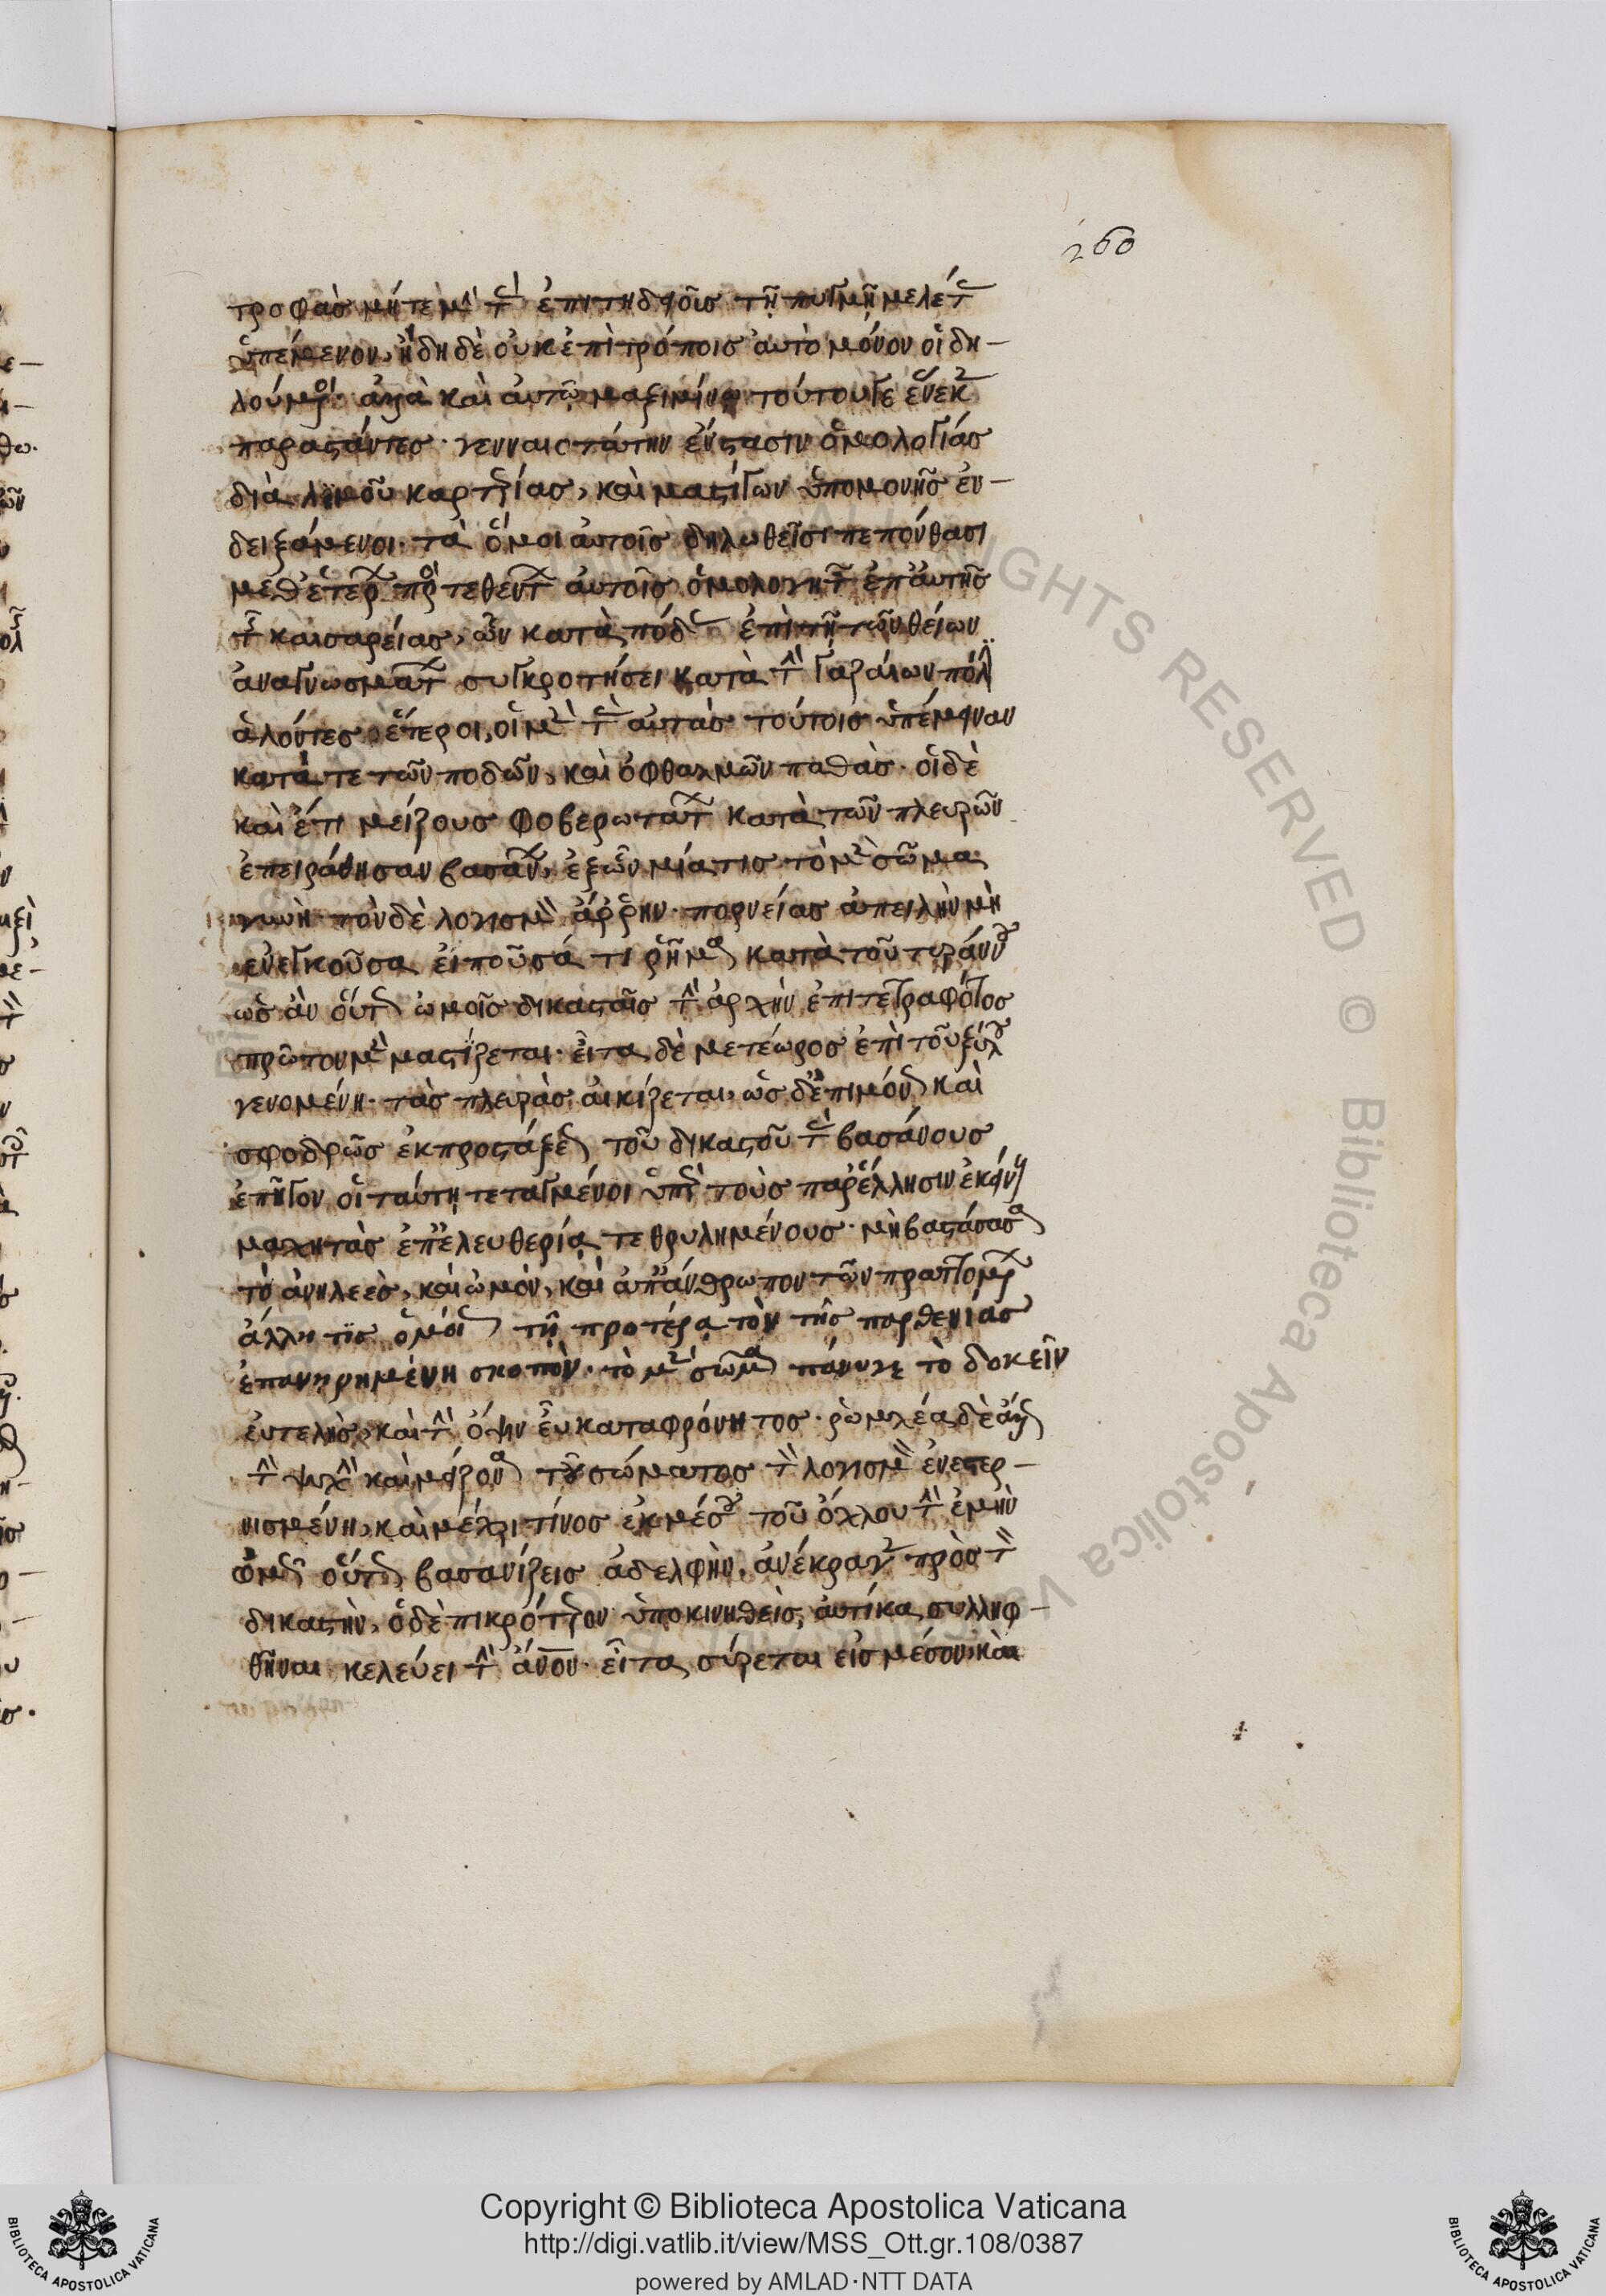 260
τροφὰσ μήτε μὴν τὰσ ἐπιτηδείοισ τῇ πυγμῇ μελέτασ
ὑπέμενον, ἤδη δὲ οὐκ ἐπιτρόποισ αὐτὸ μόνον οἱ δη-
λούμενοι· ἀλλὰ καὶ αὐτῶ μαξιμίνω τούτου γε ἕνεκα
παραστάντεσ· γενναιοτάτην ἔνστασιν ὁμολογίασ
διὰ λιμοῦ καρτερίασ, καὶ μαστίγων ὑπομονῆσ ἐν-
δειξάμενοι· τὰ ὅμοια αὐτοῖσ δηλωθεῖσι πεπόνθασι
μεθ ἑτέρων προστεθέντων αὐτοῖσ ὁμολογητῶν ἐπ αὐτῆσ
τῆσ καισαρείασ, ὧν κατὰ πόδασ ἐπὶ τῇ τῶν θείων
ἀναγνωσμάτων συγκροτήσει κατὰ τὴν γαζαίων πόλιν
ἁλόντεσ ἕτεροι, οἱ μὲν τὰσ αὐτὰσ τούτοισ ὑπέμειναν
κατά τε τῶν ποδῶν, καὶ ὀφθαλμῶν παθὰσ· οἱ δὲ
καὶ ἔτι μείζουσ φοβερωτάτων κατὰ τῶν πλευρῶν
ἐπειράθησαν βασάνων, ἐξ ὧν μία τισ τὸ μὲν σῶμα
γυνὴ· τὸν δὲ λογισμὸν ἄρρην· πορνείασ ἀπειλὴν μὴ
ἐνεγκοῦσα εἰποῦσά τι ῥῆμα κατὰ τοῦ τυράννου
ὡσ ἂν οὕτωσ ὠμοῖσ δικασταῖσ τὴν ἀρχὴν ἐπιτετραφότοσ
πρῶτον μὲν μαστίζεται· εἶτα δὲ μετέωροσ ἐπὶ τοῦ ξύλου
γενομένη· τὰσ πλευρὰσ αἰκίζεται, ὡσ δ ἐπιμόνωσ καὶ
σφοδρῶσ ἐκ προστάξεωσ τοῦ δικαστοῦ τὰσ βασάνουσ
ἐπῆγον οἱ ταύτη τεταγμένοι ὑπὲρ τοὺσ παρ ἕλλησιν ἐκείνουσ
μαχητὰσ ἐπ ἐλευθερία τεθρυλημένουσ· μὴ βαστάσασα
τὸ ἀνηλεὲσ, καὶ ὠμὸν, καὶ ἀπάνθρωπον τῶν πραττομένων
ἄλλη τισ ὁμοίωσ τῇ προτέρα τὸν τῆσ παρθενίασ
ἐπανῃρημένη σκοπὸν· τὸ μὲν σῶμα πάνυ γε τὸ δοκεῖν
εὐτελὴσ, καὶ τὴν ὄψιν εὐκαταφρόνητοσ· ῥωμαλέα δὲ ἄλλωσ
τὴν ψυχὴν καὶ μείζονα τοῦ σώματοσ τὸν λογισμὸν ἐνεστερ-
νισμένη, καὶ μέχρι τίνοσ ἐκ μέσου τοῦ ὄχλου τὴν ἐμὴν
ὠμῶσ οὕτωσ βασανίζεισ ἀδελφὴν, ἀνέκραγε πρὸσ τὸν
δικαστὴν, ὁ δὲ πικρότερον ὑποκινηθεὶσ, αὐτίκα συλληφ-
θῆναι κελεύει τὴν ἄνθρωπον· εἶτα σύρεται εἰσ μέσον, καὶ
Copyright © Biblioteca Apostolica Vaticana
http://digi.vatlib.it/view/MSS_Ott.gr.108/0387
powered by AMLAD·NTT DATA